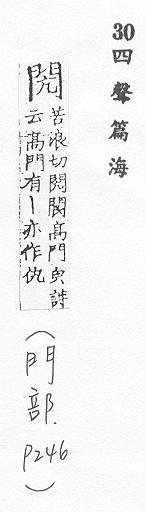 30 四聲篇海
閌
苦浪切閌閬髙門皃詩
云髙門有丨亦作伉
(門部. P246)